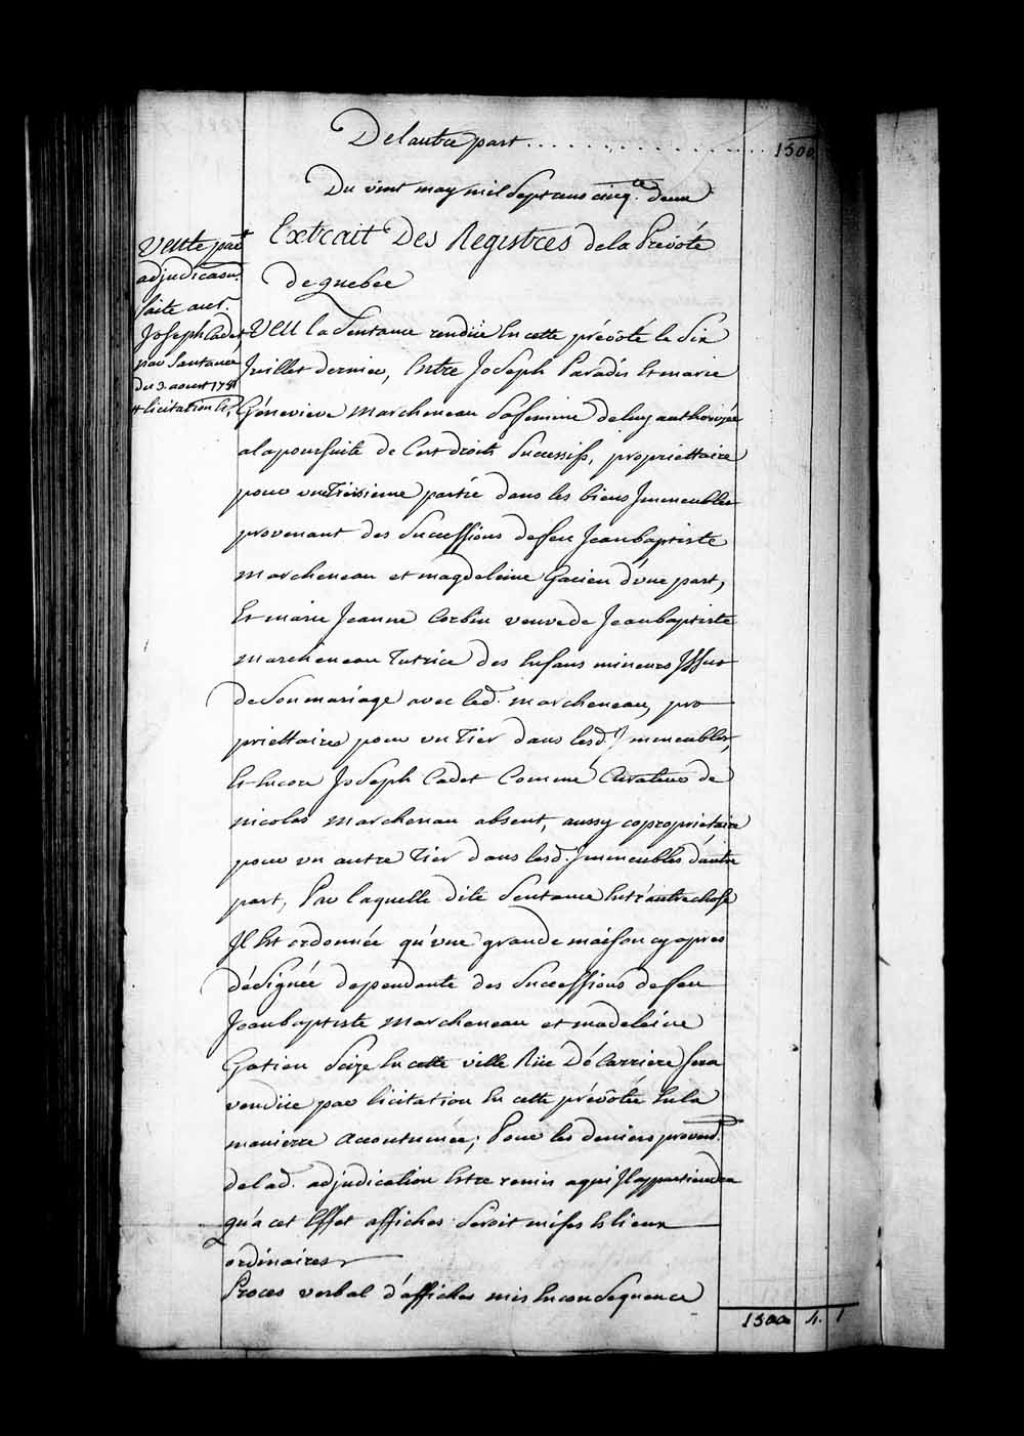 De lautre part . . . . . . . . . . . . . . 1500
Du vint may mil Sept cens cinq.te deux
Extrait Des Registres de la Prevoté
de quebec
Vente par
adjudicaon.
faite au s.r
Joseph Cadet
par Santance
du 3. aoust 175
licitation
VEU la Sentance rendüe En cette prévôté le Six
Juillet dernier, Entre Joseph Paradis Et marie
Géneviève Marcheneau Sa femme de luy authorizée
a la poursuite de Ces droits Successifs, propriettaire
pour un Troisieme partie dans les biens Jmmeubles
provenant des Successions de feu Jean baptiste
Marcheneau et magdeleine Gacien d'une part,
Et marie Jeanne Corbin veuve de Jean baptiste
Marcheneau Tutrice des Enfans mineurs Jssus
de Son mariage avec led. Marcheneau, pro
priettaires pour un Tier dans lesd. Jmmeubles,
Et Encore Joseph Cadet Comme Curateur de
nicolas Marcheneau absent, aussy copropriétaire
pour un autre Tier dans lesd. Jmmeubles d'autre
part, Par laquelle dite Sentance Entr'autre chose
Jl Est ordonnée qu'une grande maison cy apres
désignée dependante des Successions de feu
Jean baptiste Marcheneau et madeleine
Gatien Scize En cette ville Rüe Dé Carriere Sera
vendüe par licitation En cette prévôtée En la
manierre Accoutumée; Pour les deniers proven.t
de lad. adjudication Estre remis a qui Jl appartiendra
qu'a cet Effet affiches Seroit mises Es lieux
ordinaires
Proces verbal d'affiches mis En consequence
1500 4. 1